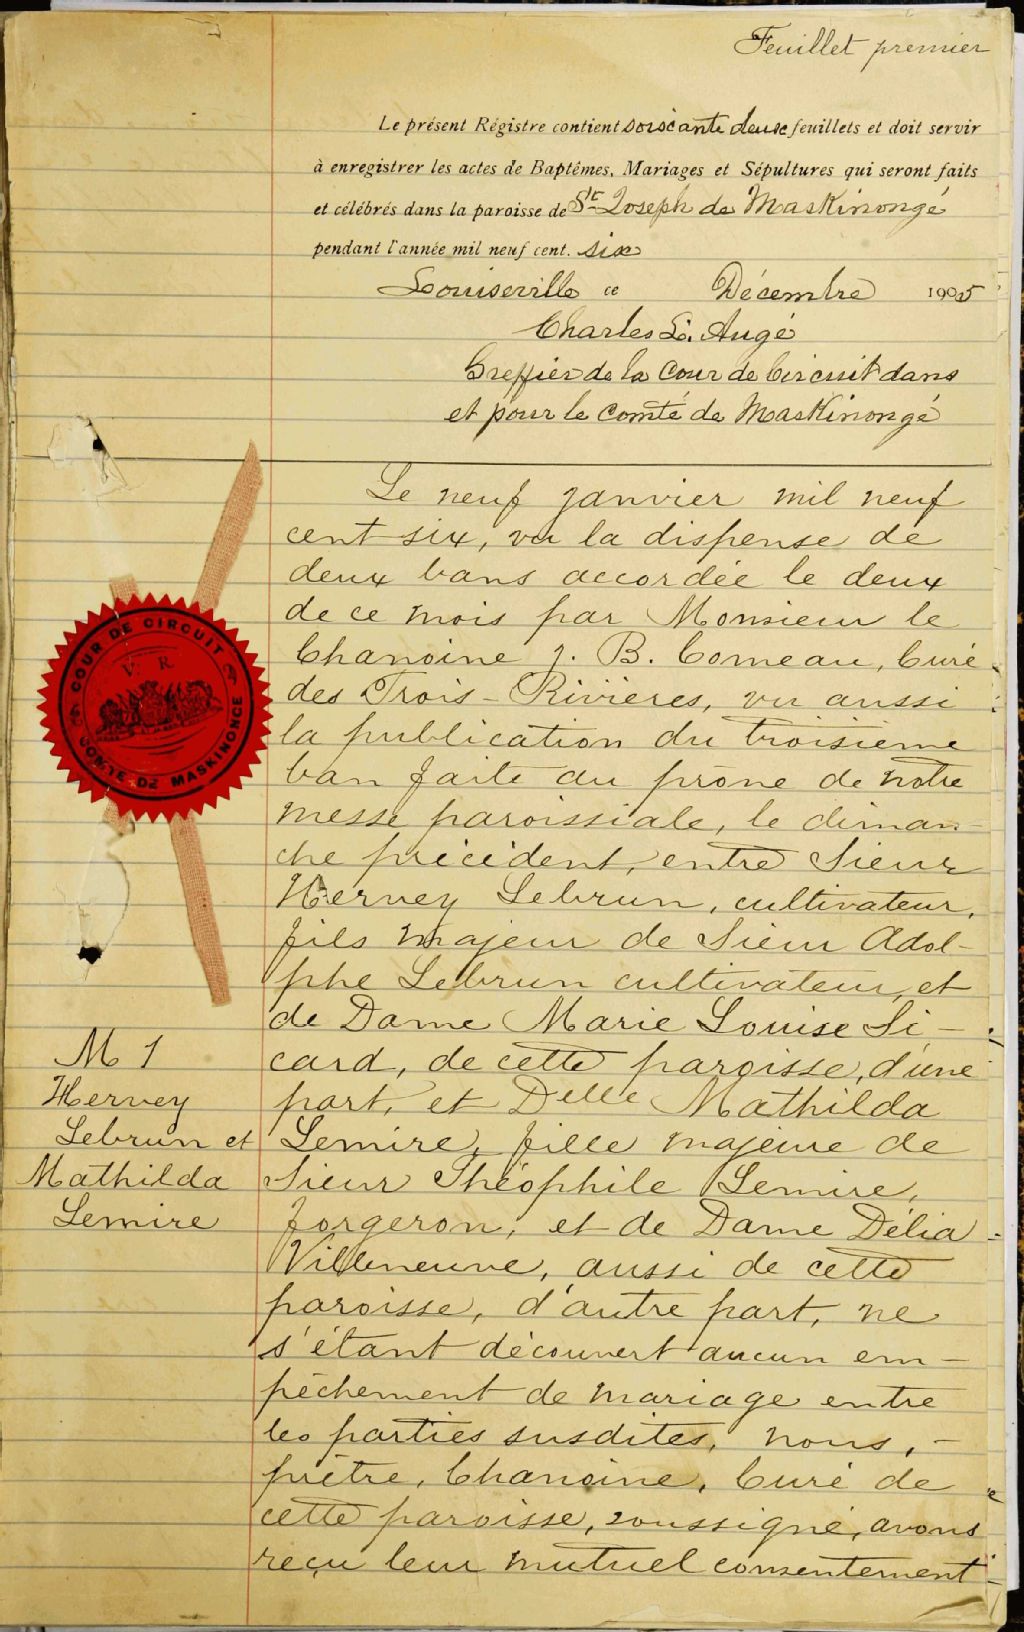 Feuillet premier
Le présent Régistre contient soixante deux feuillets et doit servir
à enregistrer les actes de Baptêmes, Mariages et Sépultures qui seront faits
et célébrés dans la paroisse de St. Joseph de Maskinongé
pendant l'année mil neuf cent. six
Louiseville ce Décembre 1905
Charles L. Augé
Greffier de la Cour de Circuit dans
et pour le Comté de Maskinongé
Le neuf janvier mil neuf
cent six, vu la dispense de
deux bans accordée le deux
de ce mois par Monsieur le
Chanoine J. B. Comeau, Curé
des Trois-Rivières, vu aussi
la publication du troisième
ban faite au prône de notre
messe paroissiale, le diman-
che précédent, entre Sieur
Hervey Lebrun, cultivateur,
fils majeur de Sieur Adol-
phe Lebrun cultivateur, et
de Dame Marie Louise Si-
card, de cette paroisse, d'une
part, et Delle Mathilda
Lemire, fille majeure de
Sieur Théophile Lemire,
forgeron, et de Dame Délia
Villeneuve, aussi de cette
paroisse, d'autre part, ne
s'étant découvert aucun em-
pêchement de mariage entre
les parties susdites, nous, -
prêtre, Chanoine, Curé de
cette paroisse, soussigné, avons
reçu leur mutuel consentement
COUR DE CIRCUIT
V. R.
COMTE DE MASKINONGE
M 1
Hervey
Lebrun et
Mathilda
Lemire